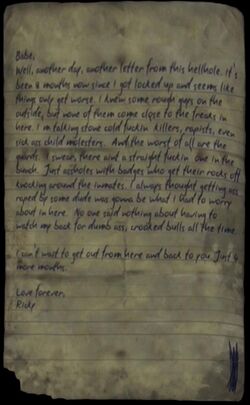 Babe,
Well, another day, another letter from this hellhole. It's
been 8 months now since I got locked up and seems like
things only get worse. I knew some rough guys on the
outside, but none of them come close to the freaks in
here. I'm talking stone cold fuckin killers, rapists, even
sick ass child molesters. And the worst of all are the
guards. I swear, there aint a straight fuckin' one in the
bunch. Just assholes with badges who get their rocks off
knocking around the inmates. I always thought getting ass
raped by some dude was gonna be what I had to worry
about in here. No one said nothing about having to
watch my back for dumb ass, crooked bulls all the time.
I can't wait to get out from here and back to you. Just 4
more months.
Love forever,
Ricky